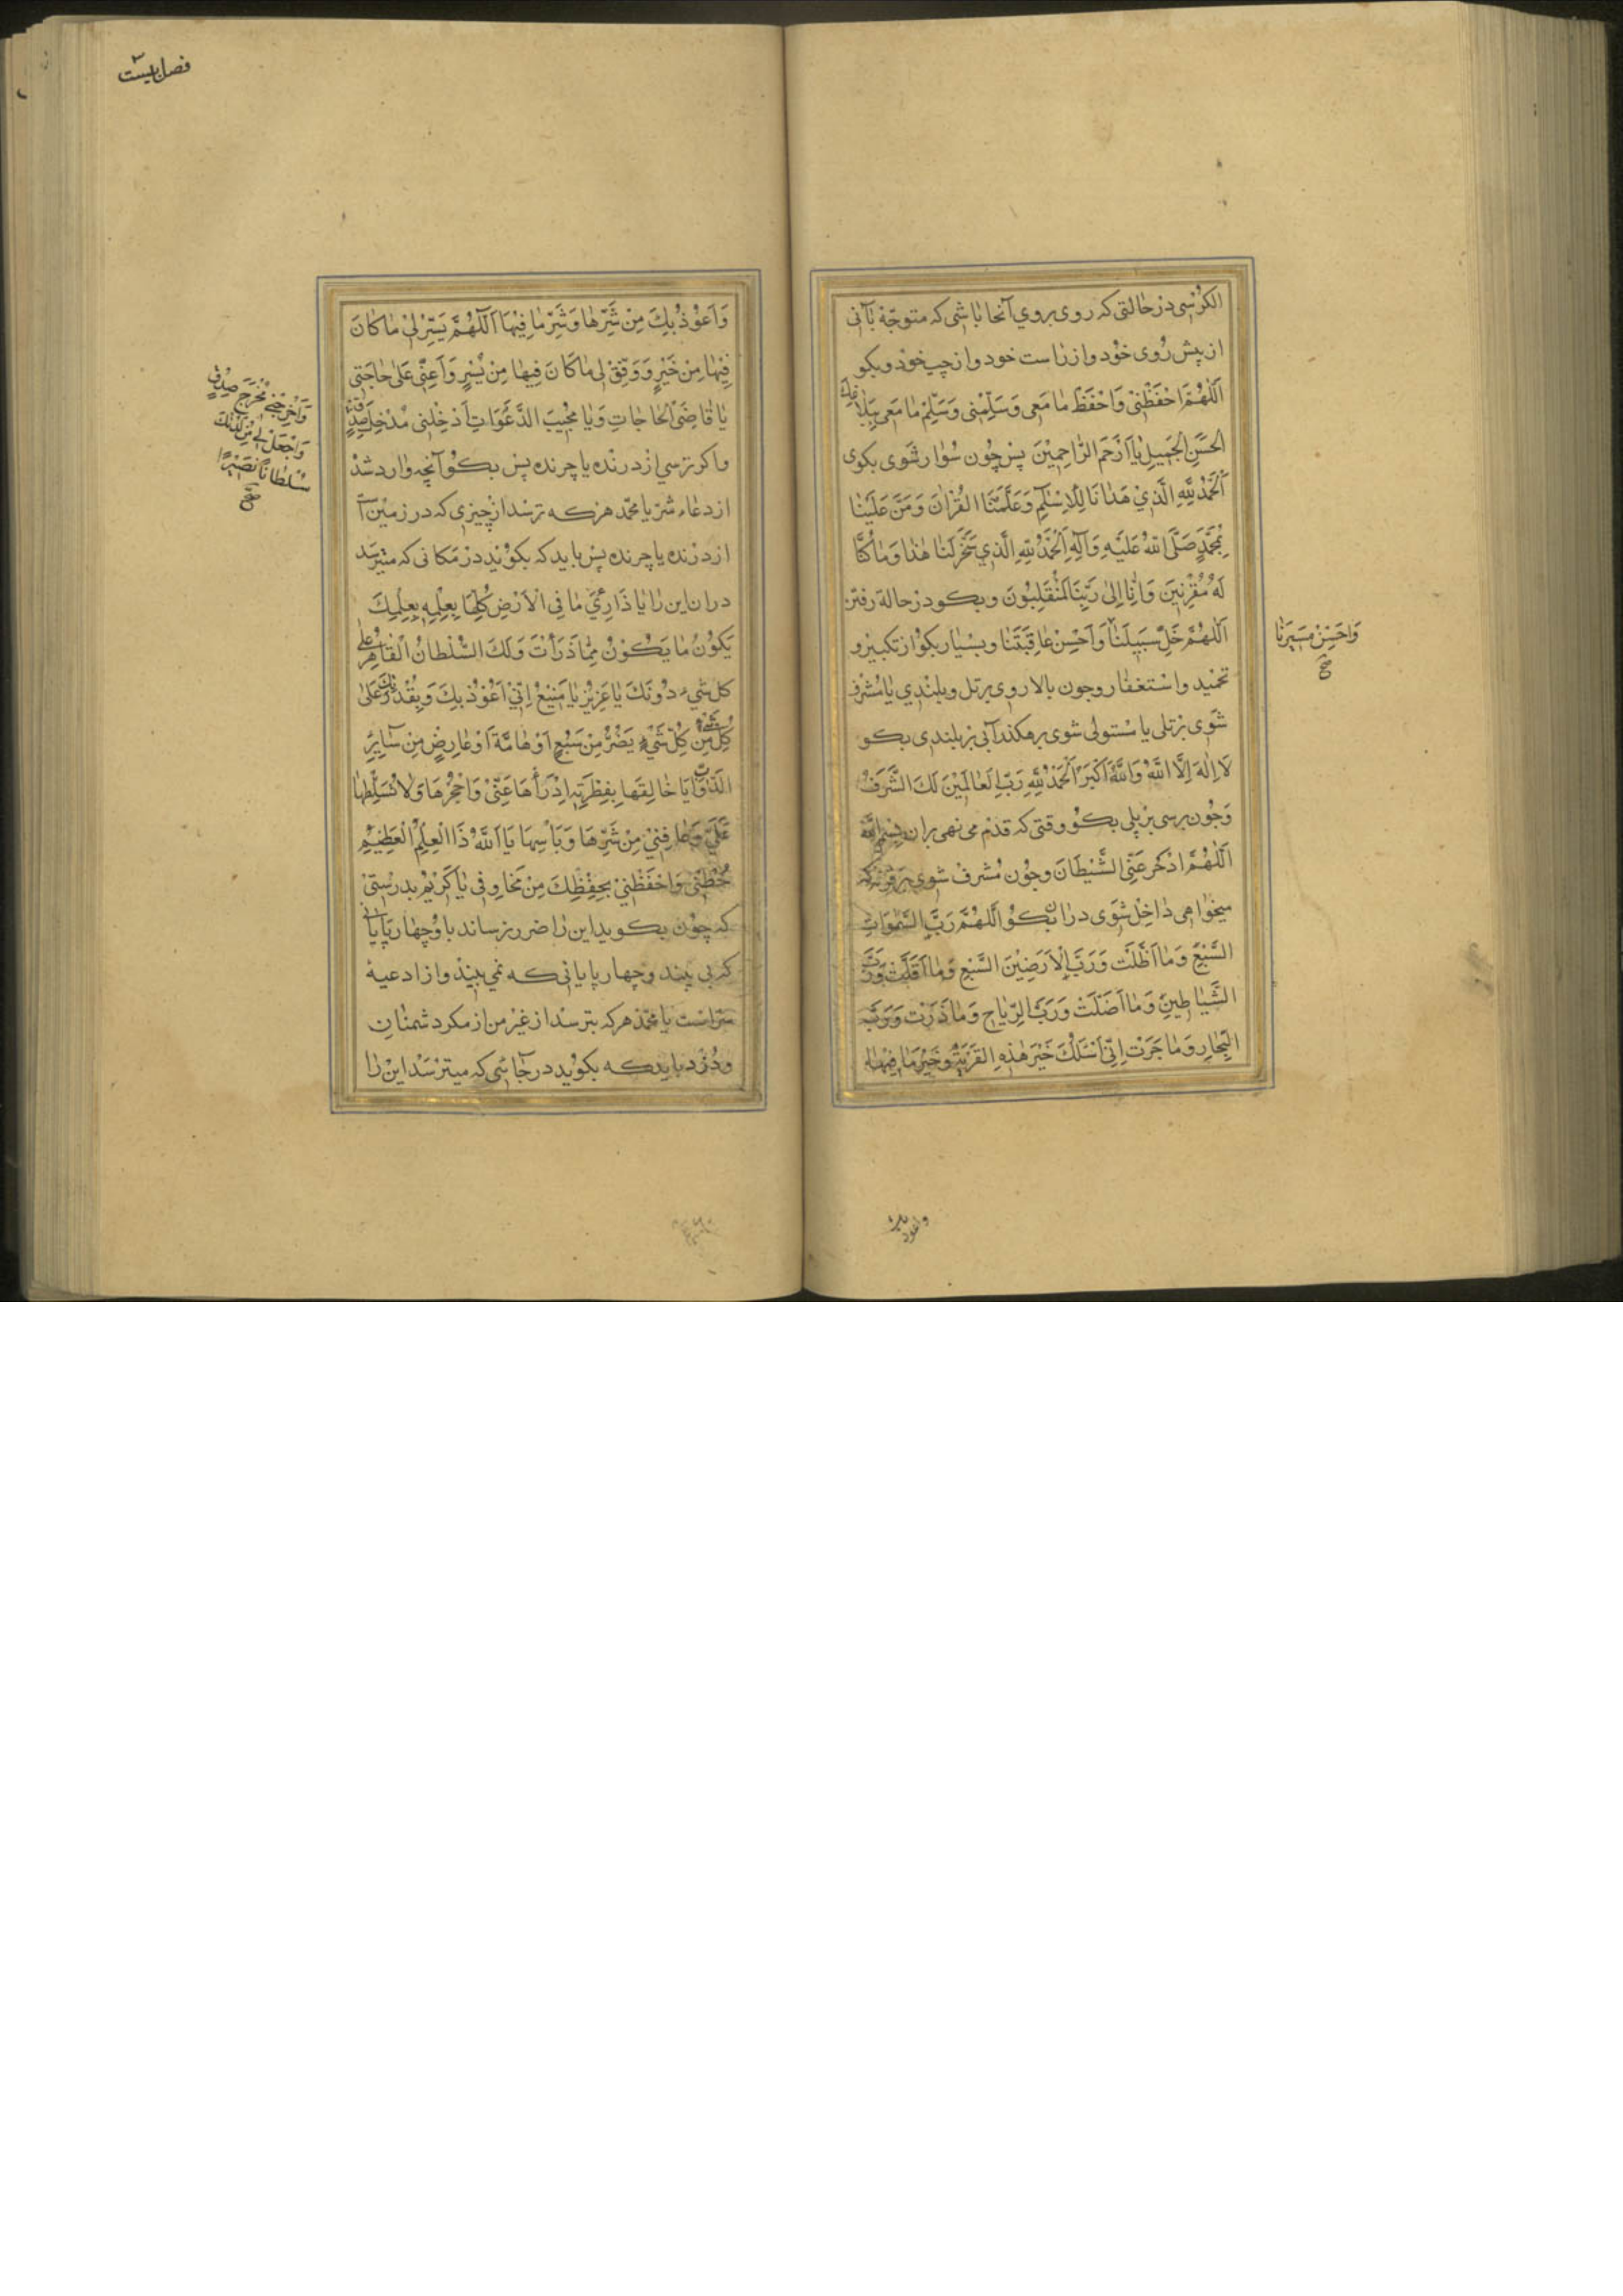 الکرسی در حالتی که روی بروی آنجا باشی که متوجّه بآنی
از پیش روی خود و از راست خود و از چپ خود و بکو
اَللّٰهُمَّ احْفَظْنی وَاحْفَظْ ما مَعی وَسَلِّمْنی وَسَلِّمْ ما مَعی بِبَلاغِكَ
الْحَسَنِ الْجَمیلِ یا اَرْحَمَ الرّاحِمینَ پس چون سوار شوی بکوی
اَلْحَمْدُ لِلّٰهِ الَّذی هَدانا لِلْاِسْلامِ وَعَلَّمَنَا الْقُرْانَ وَمَنَّ عَلَیْنا
بِمُحَمَّدٍ صَلَّی اللّٰهُ عَلَیْهِ وَآلِهِ اَلْحَمْدُ لِلّٰهِ الَّذی سَخَّرَ لَنا هٰذا وَما کُنّا
لَهُ مُقْرِنینَ وَاِنّا اِلیٰ رَبِّنا لَمُنْقَلِبُونَ و بکو در حالة رفتن
اَللّٰهُمَّ خَلِّ سَبیلَنا وَاَحْسِنْ عاقِبَتَنا و بسیار بکو از تکبیر و
وَاَحْسِنْ مَسیرَنا
صح
تحمید و استغفار و چون بالا روی بر تل و بلندی یا مشرف
شوی بر تلی یا مستولی شوی بر هکندآبی بر بلندی بکو
لا اِلٰهَ اِلَّا اللّٰهُ وَاللّٰهُ اَکْبَرُ اَلْحَمْدُ لِلّٰهِ رَبِّ الْعالَمینَ لَكَ الشَّرَفُ
و چون برسی بر پلی بکو وقتی که قدم می نهی بران بِسْمِ اللّٰهِ
اَللّٰهُمَّ ادْحَرْ عَنِّی الشَّیْطانَ و چون مشرف شوی بر قریه که
میخواهی داخل شوی دران بکو اَللّٰهُمَّ رَبَّ السَّمٰوَاتِ
السَّبْعِ وَما اَظَلَّتْ وَرَبَّ الْاَرَضینَ السَّبْعِ وَما اَقَلَّتْ وَرَبَّ
الشَّیاطینِ وَما اَضَلَّتْ وَرَبَّ الرِّیاحِ وَما ذَرَتْ وَرَبَّ
الْبِحارِ وَما جَرَتْ اِنّی اَسْئَلُكَ خَیْرَ هٰذِهِ الْقَرْیَةِ وَخَیْرَ ما فیها
واعوذ
فصل بیست
وَاَعُوذُ بِكَ مِنْ شَرِّها وَشَرِّ ما فیها اَللّٰهُمَّ یَسِّرْ لی ما کانَ
فیها مِنْ خَیْرٍ وَوَفِّقْ لی ما کانَ فیها مِنْ یُسْرٍ وَاَعِنّی عَلیٰ حاجَتی
یا قاضِیَ الْحاجاتِ وَیا مُجیبَ الدَّعَواتِ اَدْخِلْنی مُدْخَلَ صِدْقٍ
وَاَخْرِجْنی مُخْرَجَ صِدْقٍ
وَاجْعَلْ لی مِنْ لَدُنْكَ
سُلْطاناً نَصیراً
صح
و اکر ترسی از درنده یا چرنده پس بکو آنچه وارد شد
از دعاء سرّ یا محمّد هر که ترسد از چیزی که در زمین آ
از درنده یا چرنده پس باید که بکوید در مکانی که میترسد
دران این را یا ذارِئَ ما فِی الْاَرْضِ کُلِّها بِعِلْمِهِ بِعِلْمِكَ
یَکُونُ ما یَکُونُ مِمّا ذَرَأْتَ وَلَكَ السُّلْطانُ الْقاهِرُ عَلیٰ
کُلِّ شَیْءٍ دُونَكَ یا عَزیزُ یا مَنیعُ اِنّی اَعُوذُ بِكَ وَبِقُدْرَتِكَ عَلیٰ
کُلِّ شَیْءٍ مِنْ کُلِّ شَیْءٍ یَضُرُّ مِنْ سَبُعٍ اَوْ هامَّةٍ اَوْ عارِضٍ مِنْ سائِرِ
الدَّوابِّ یا خالِقَها بِفِطْرَتِهِ اِدْرَأْها عَنّی وَاحْجُزْها وَلا تُسَلِّطْها
عَلَیَّ وَعافِنی مِنْ شَرِّها وَبَأْسِها یا اَللّٰهُ ذَا الْعِلْمِ الْعَظیمِ
حُطْنی وَاحْفَظْنی بِحِفْظِكَ مِنْ مَخاوِفی یا کَریمُ بدرستی
که چون بکوید این را ضرر نرساند باو چهارپایانی
که بی بیند و چهارپایانی که نمی بیند و از ادعیهٔ
سرّاست یا محمّد هر که بترسد از غیر من از مکر دشمنان
و دزد باید که بکوید در جائی که میترسد این را